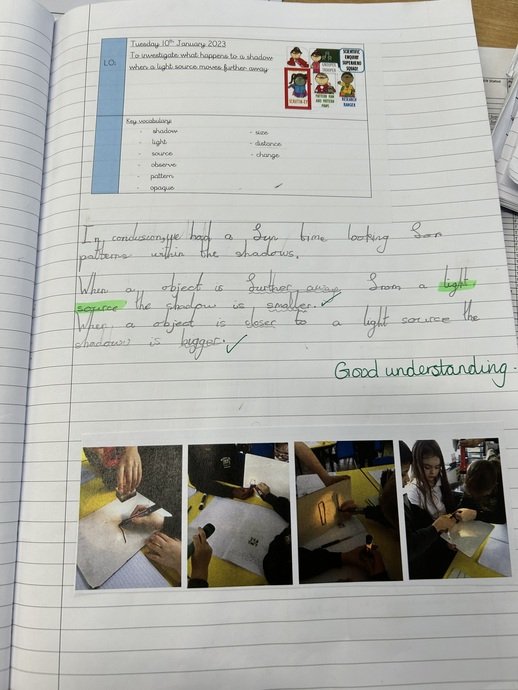 Tuesday 10th January 2023
LO:
To investigate what happens to a shadow
when a light source moves further away
SCIENTIFIC
ENQUIRY
SUPERHERO
SQUAD
PATTERN MAN
AND PATTERN
PUPS
RESEARCH
RANGER
Key vocabulary:
- shadow
- light
- source
- observe
- pattern
- opaque
- size
- distance
- change
In conclusion, we had a fun time looking for
patterns within the shadows.
When a object is further away from a light
source the shadow is smaller.
When a object is closer to a light source the
shadow is bigger.
Good understanding.